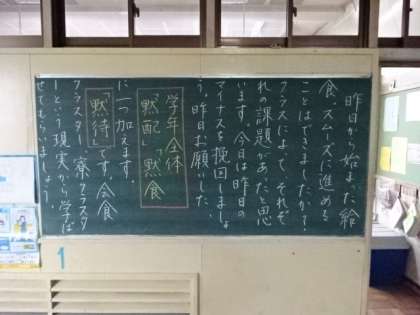 昨日から始まった給
食。スムーズに進める
ことはできましたか？
クラスによって、それぞ
れの課題があったと思
います。今日は昨日の
マイナスを挽回しましょ
う。昨日お願いした、
学年全体
「黙配」「黙食」
に一つ加えます。
「黙待」です。会食
クラスター、寮クラスタ
ーという現実から学ば
せてもらいましょう。
1